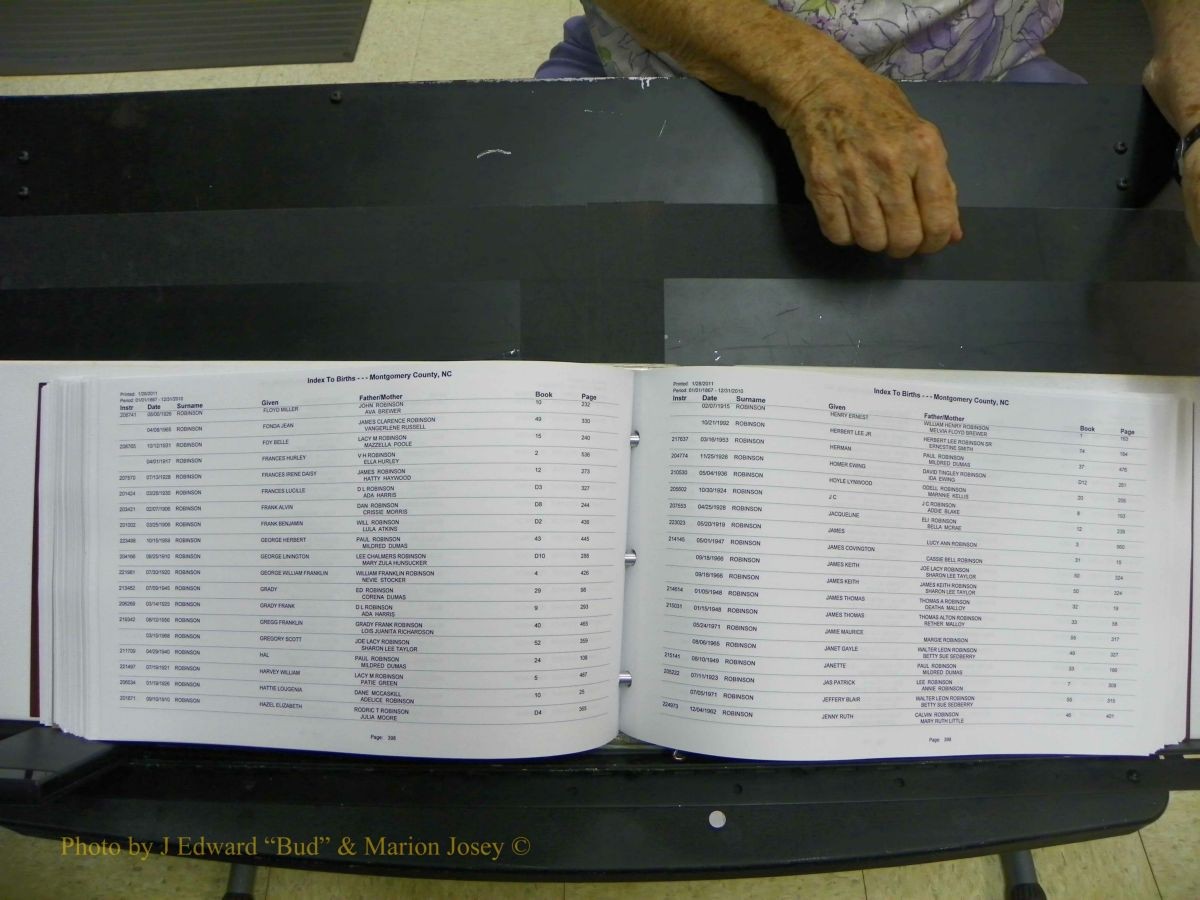 Index To Births - - - Montgomery County, NC
Printed: 1/28/2011
Period: 01/01/1867 - 12/31/2010
Instr Date Surname Given Father/Mother Book Page
ROBINSON FLOYD MILLER JOHN ROBINSON 10 232
AVA BREWER
ROBINSON FONDA JEAN JAMES CLARENCE ROBINSON 49 330
VANGERLENE RUSSELL
ROBINSON FOY BELLE LACY M ROBINSON 15 240
MAZZELLA POOLE
ROBINSON FRANCES HURLEY V H ROBINSON 2 536
ELLA HURLEY
ROBINSON FRANCES IRENE DAISY JAMES ROBINSON 12 273
HATTY HAYWOOD
ROBINSON FRANCES LUCILLE D L ROBINSON D3 327
ADA HARRIS
ROBINSON FRANK ALVIN DAN ROBINSON D8 244
CRISSIE MORRIS
ROBINSON FRANK BENJAMIN WILL ROBINSON D2
LULA ATKINS
ROBINSON GEORGE HERBERT PAUL ROBINSON 43 445
MILDRED DUMAS
ROBINSON GEORGE LININGTON LEE CHALMERS ROBINSON D10
MARY ZULA HUNSUCKER
ROBINSON GEORGE WILLIAM FRANKLIN WILLIAM FRANKLIN ROBINSON 4 426
NEVIE STOCKER
ROBINSON GRADY ED ROBINSON 29
CORENA DUMAS
ROBINSON GRADY FRANK D L ROBINSON 9 293
ADA HARRIS
ROBINSON GREGG FRANKLIN GRADY FRANK ROBINSON 40 465
LOIS JUANITA RICHARDSON
ROBINSON GREGORY SCOTT JOE LACY ROBINSON 52 359
SHARON LEE TAYLOR
ROBINSON HAL PAUL ROBINSON 24
MILDRED DUMAS
ROBINSON HARVEY WILLIAM LACY M ROBINSON 5 487
PATIE GREEN
ROBINSON HATTIE LOUGENIA DANE MCCASKILL 10 25
ADELICE ROBINSON
ROBINSON HAZEL ELIZABETH RODRIC T ROBINSON D4 365
JULIA MOORE
Page: 398
Index To Births - - - Montgomery County, NC
Printed: 1/28/2011
Period: 01/01/1867 - 12/31/2010
Instr Date Surname Given Father/Mother Book Page
02/07/1915 ROBINSON HENRY ERNEST WILLIAM HENRY ROBINSON 1
MELVIA FLOYD BREWER
10/21/1992 ROBINSON HERBERT LEE JR HERBERT LEE ROBINSON SR 74
ERNESTINE SMITH
217637 03/16/1953 ROBINSON HERMAN PAUL ROBINSON 37
MILDRED DUMAS
204774 11/25/1926 ROBINSON HOMER EWING DAVID TINGLEY ROBINSON D12
IDA EWING
210530 05/04/1936 ROBINSON HOYLE LYNWOOD ODELL ROBINSON 20
MARNNIE KELLIS
10/30/1924 ROBINSON J C J C ROBINSON
ADDIE BLAKE
207553 04/25/1928 ROBINSON JACQUELINE ELI ROBINSON 12
BELLA MCRAE
223023 05/20/1919 ROBINSON JAMES LUCY ANN ROBINSON
214145 05/01/1947 ROBINSON JAMES COVINGTON CASSIE BELL ROBINSON
09/18/1966 ROBINSON JAMES KEITH JOE LACY ROBINSON 50 324
SHARON LEE TAYLOR
09/18/1966 ROBINSON JAMES KEITH JAMES KEITH ROBINSON 50 324
SHARON LEE TAYLOR
214614 01/05/1948 ROBINSON JAMES THOMAS THOMAS A ROBINSON 32
DEATHA MALLOY
215031 01/15/1948 ROBINSON JAMES THOMAS THOMAS ALTON ROBINSON 33
RETHER MALLOY
05/24/1971 ROBINSON JAMIE MAURICE MARGIE ROBINSON 317
08/06/1965 ROBINSON JANET GAYLE WALTER LEON ROBINSON 49 327
BETTY SUE SEDBERRY
215141 08/10/1949 ROBINSON JANETTE PAUL ROBINSON 33
MILDRED DUMAS
07/11/1923 ROBINSON JAS PATRICK LEE ROBINSON 7
ANNIE ROBINSON
07/05/1971 ROBINSON JEFFERY BLAIR WALTER LEON ROBINSON 315
BETTY SUE SEDBERRY
224973 12/04/1962 ROBINSON JENNY RUTH CALVIN ROBINSON 46 401
MARY RUTH LITTLE
Page: 399
Photo by J Edward “Bud” & Marion Josey ©